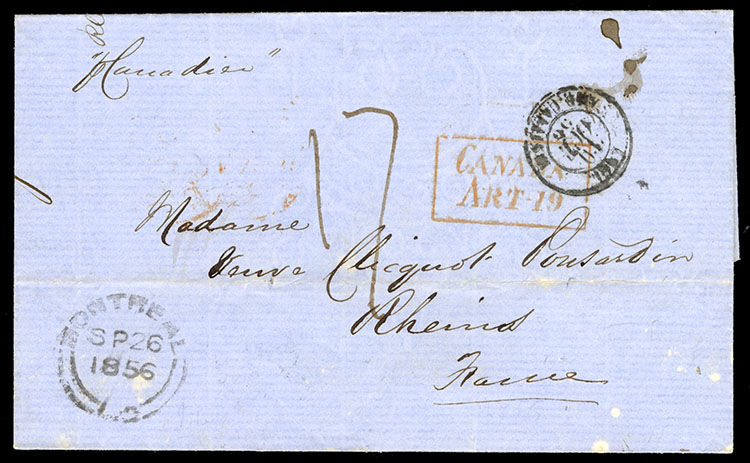 "Canadien"
17
CANADA
ART-19
Madame
Veuve Clicquot Ponsardin
Rheims
France
MONTREAL
SP 26
1856
L.C